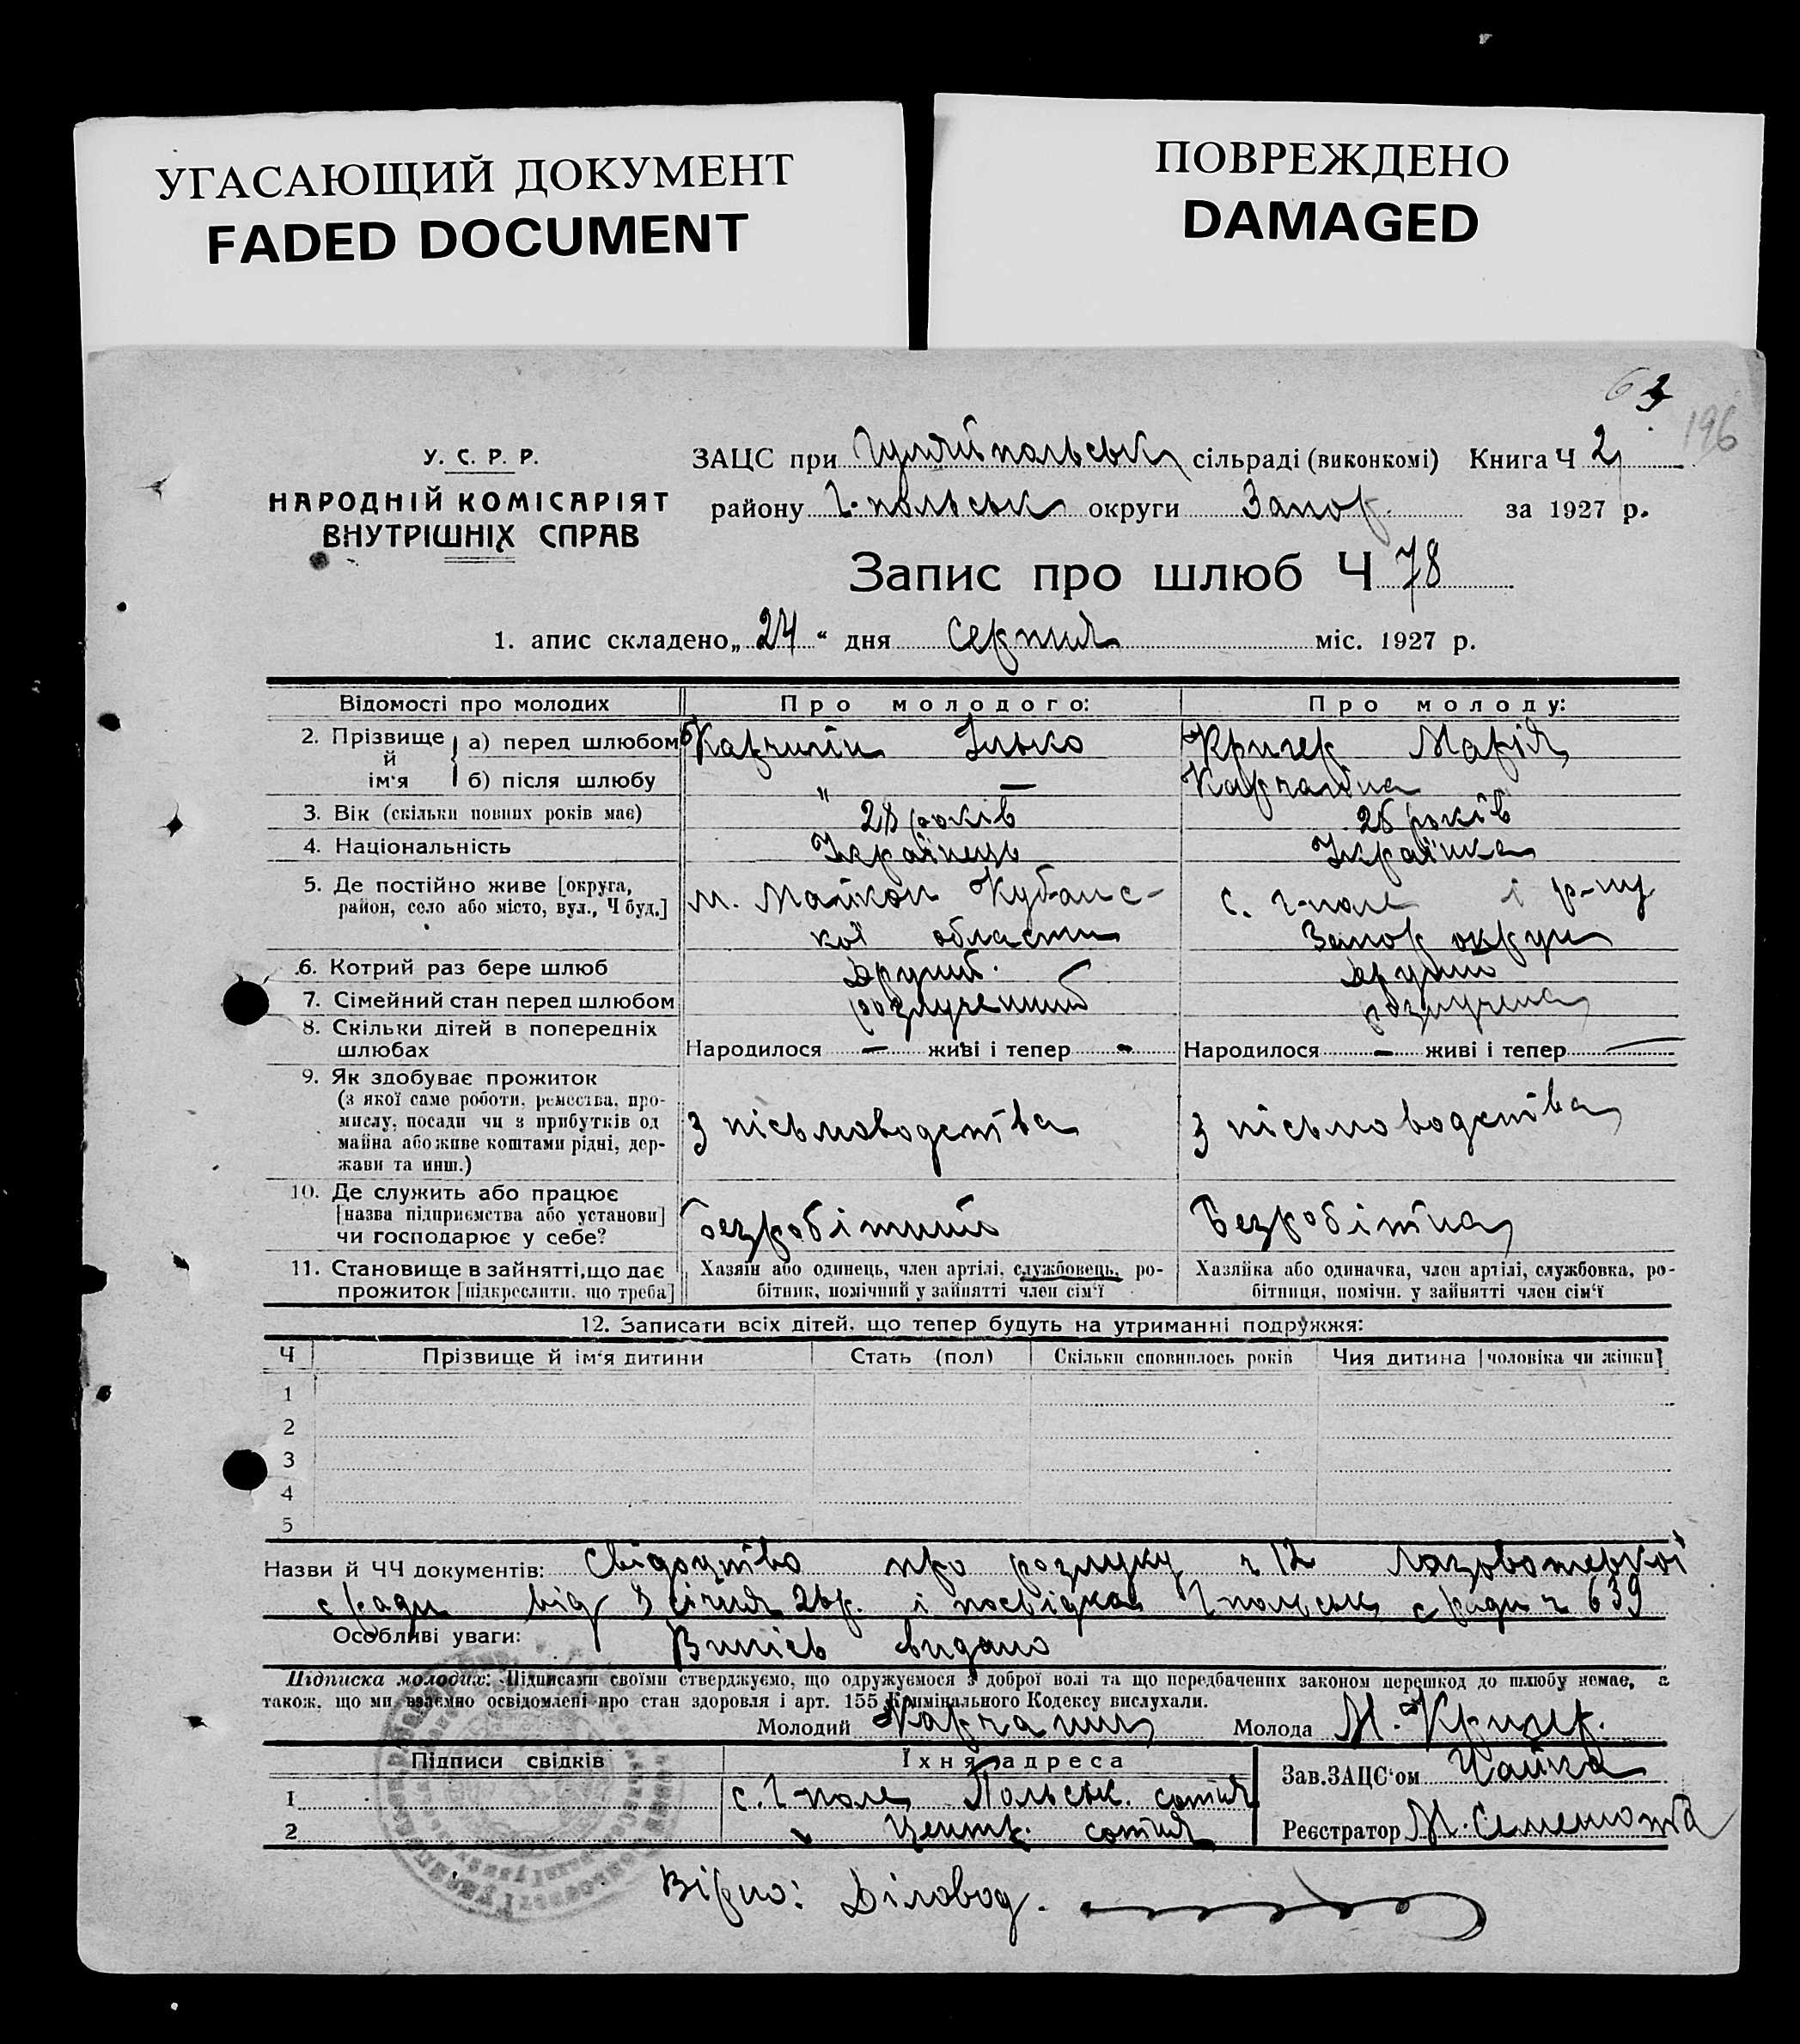 УГАСАЮЩИЙ ДОКУМЕНТ
FADED DOCUMENT
ПОВРЕЖДЕНО
DAMAGED
196
У. С. Р. Р.
НАРОДНІЙ КОМІСАРІЯТ
ВНУТРІШНІХ СПРАВ
ЗАЦС при Гуляйпольськ сільраді (виконкомі) Книга Ч 2
району Г-польськ округи Запор. за 1927 р.
Запис про шлюб Ч 78
1. апис складено „24“ дня серпня міс. 1927 р.
Відомості про молодих Про молодого: Про молоду:
2. Прізвище й ім'я а) перед шлюбом Ілько Кригер Марія
б) після шлюбу " —
3. Вік (скільки повних років має) 28 років 26 років
4. Національність Українець Українка
5. Де постійно живе [округа, район, село або місто, вул., Ч буд.] м. Майкоп Кубанс- с. Г-поле і р-ну
кої области Запор округи
6. Котрий раз бере шлюб другий другий
7. Сімейний стан перед шлюбом розлучений розлучена
8. Скільки дітей в попередніх шлюбах Народилося — живі і тепер - Народилося — живі і тепер —
9. Як здобуває прожиток
(з якої саме роботи, ремества, про-
мислу, посади чи з прибутків од
майна або живе коштами рідні, дер-
жави та инш.)
З пісьмоводства З пісьмоводства
10. Де служить або працює
[назва підприємства або установи]
чи господарює у себе?
безробітний Безробітна
11. Становище в зайнятті, що дає
прожиток [підкреслити, що треба]
Хазяїн або одинець, член артілі, службовець, ро-
бітник, помічний у зайнятті член сім'ї
Хазяйка або одиначка, член артілі, службовка, ро-
бітниця, помічн. у зайнятті член сім'ї
12. Записати всіх дітей, що тепер будуть на утриманні подружжя:
Ч Прізвище й ім'я дитини Стать (пол) Скільки сповнилось років Чия дитина [чоловіка чи жінки]
1
2
3
4
5
Назви й ЧЧ документів: Свідоцтво про розлуку ч 12
с ради від 8 січня 26р. і посвідка Гпольськ с ради ч 639
Особливі уваги: Випись видано
Підписка молодих: Підписами своїми стверджуємо, що одружуємося з доброї волі та що передбачених законом перешкод до шлюбу немає, а
також, що ми взаємно освідомлені про стан здоровля і арт. 155 Кримінального Кодексу вислухали.
Молодий Молода М. Кригер.
Підписи свідків Їхня адреса Зав.ЗАЦС'ом Чайка
1 с. Г-поле Польськ. сотня
2 " Центр. сотня Реєстратор М. Семенюта
Вірно: Діловод.